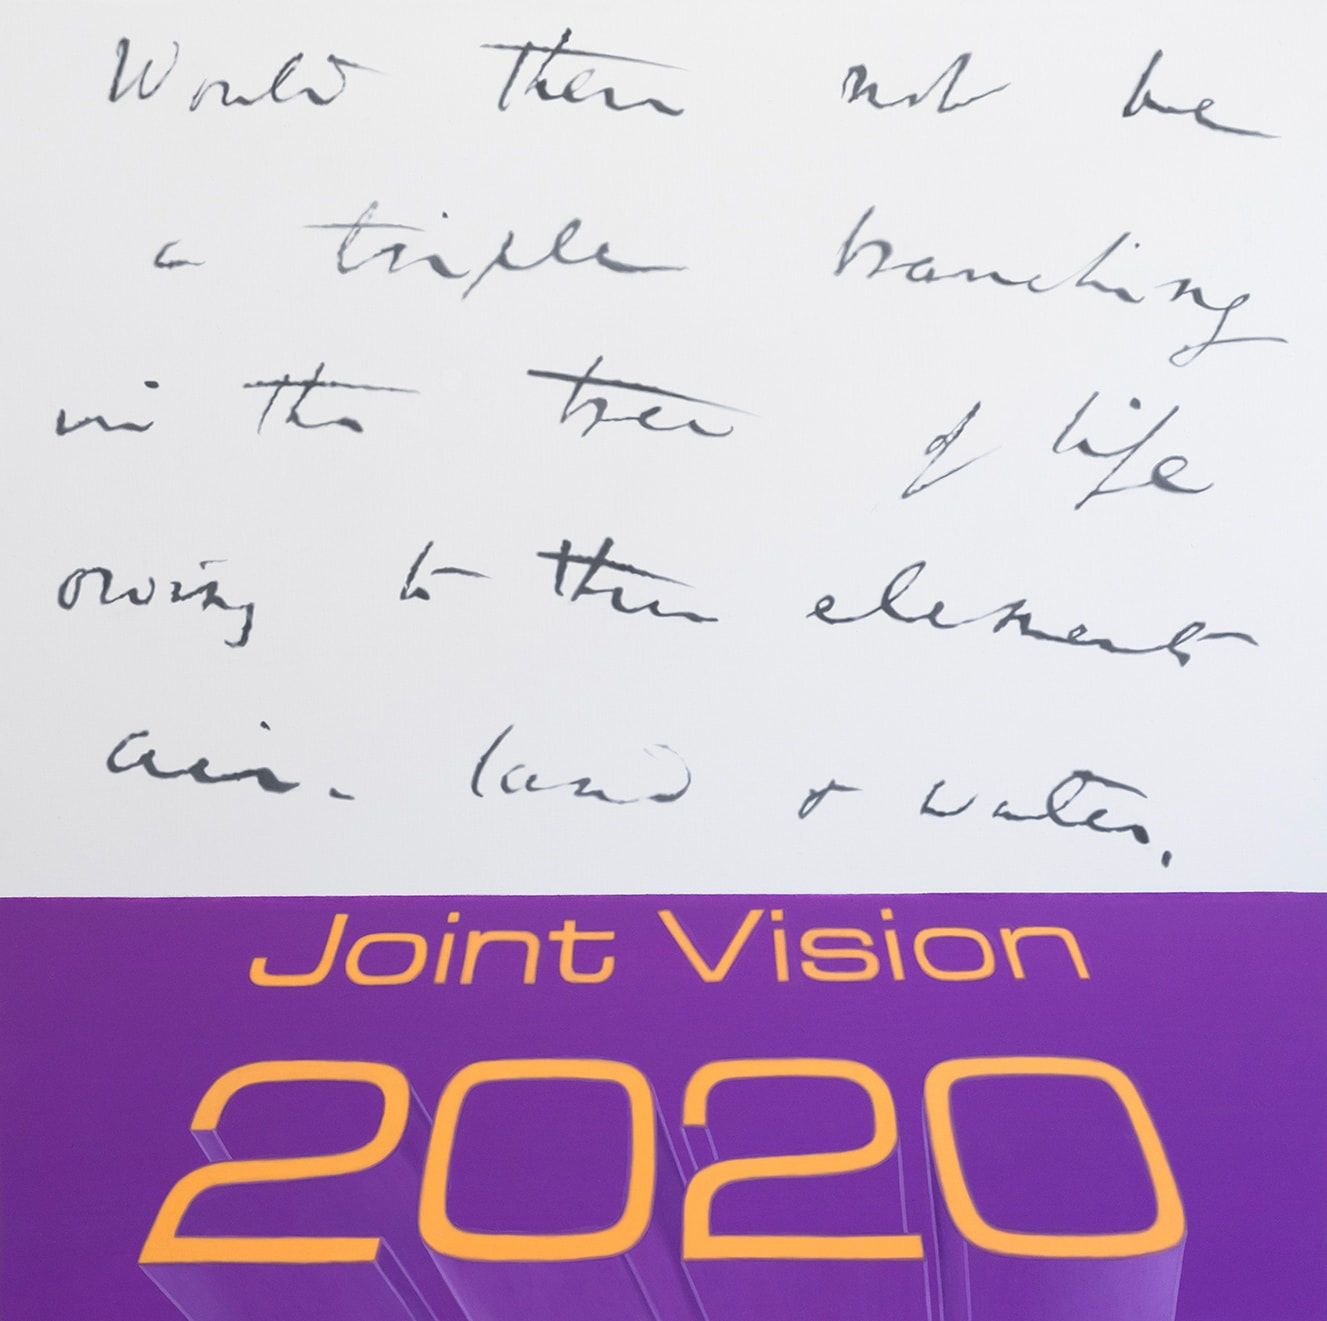 Would there not be
a triple branching
in the tree of life
owing to three elements
air. land & water.
Joint Vision
2020